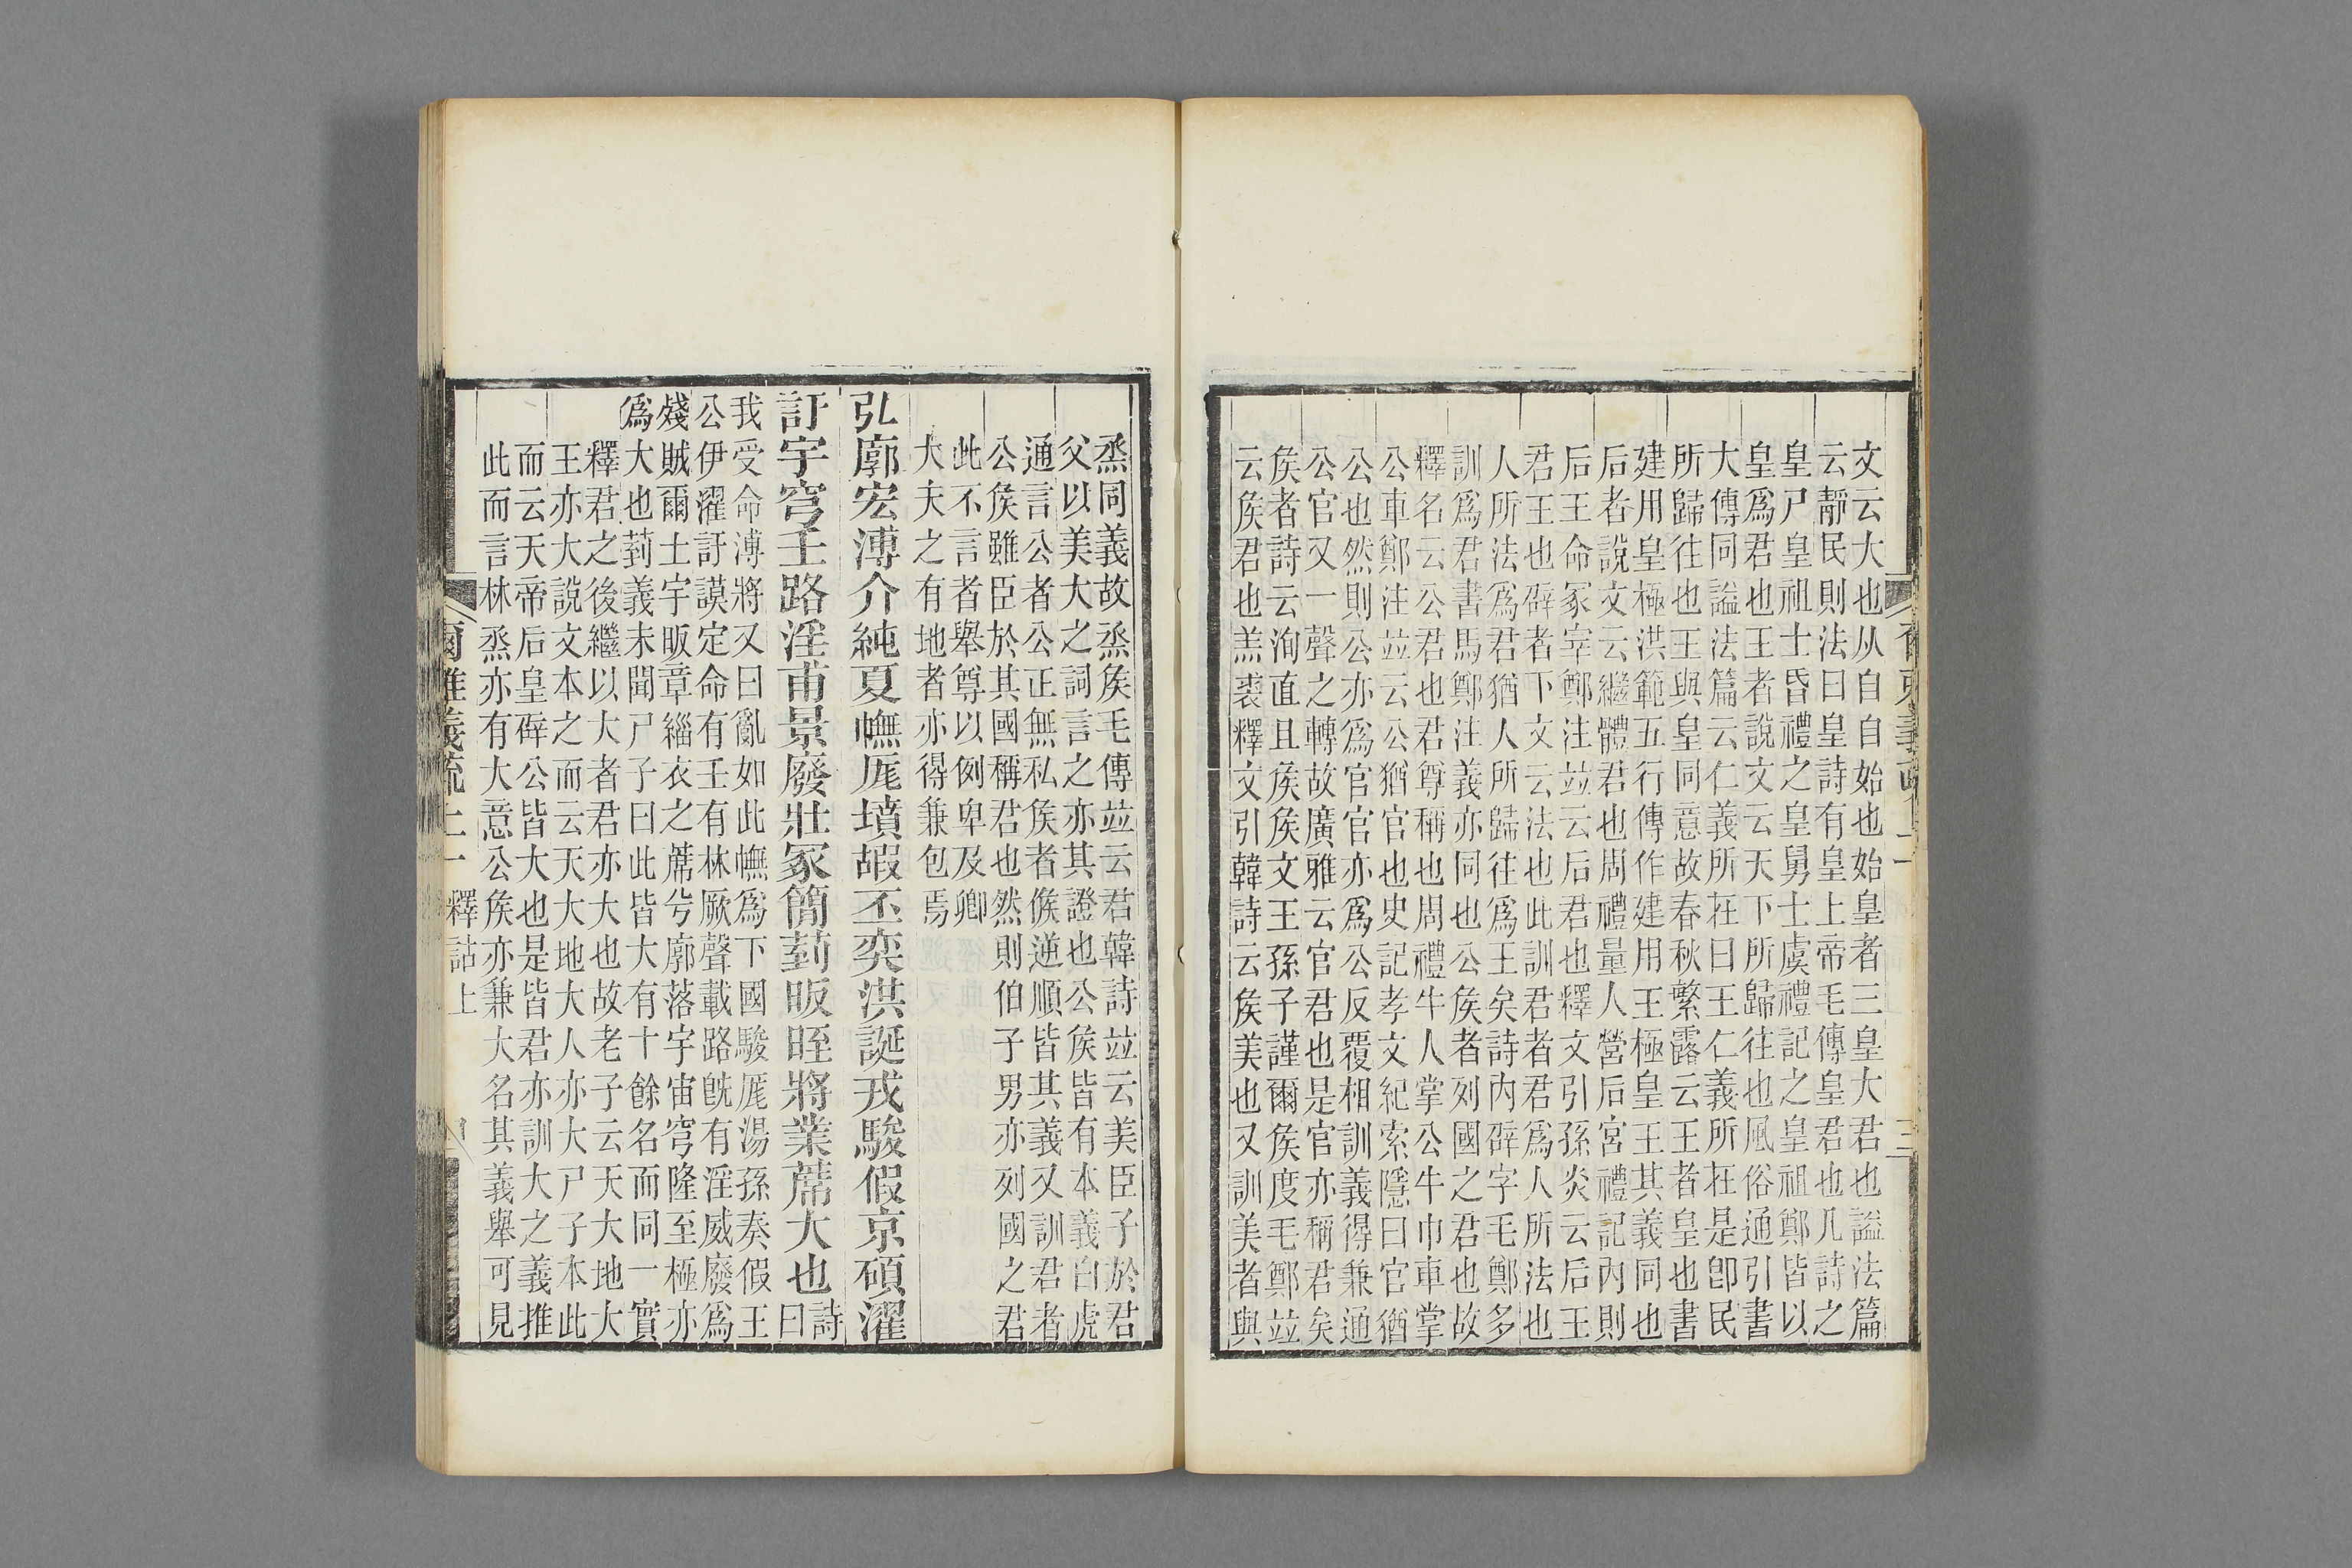 文云大也从自自始也始皇者三皇大君也謚法篇
云靜民則法曰皇詩有皇上帝毛傳皇君也凡詩之
皇尸皇祖士昏禮之皇舅士虞禮記之皇祖鄭皆以
皇爲君也王者說文云天下所歸往也風俗通引書
大傳同謚法篇云仁義所在曰王仁義所在是卽民
所歸往也王與皇同意故春秋繁露云王者皇也書
建用皇極洪範五行傳作建用王極皇王其義同也
后者說文云繼體君也周禮量人營后宮禮記內則
后王命冢宰鄭注竝云后君也釋文引孫炎云后王
君王也辟者下文云法也此訓君者君爲人所法也
人所法爲君猶人所歸往爲王矣詩內辟字毛鄭多
訓爲君書馬鄭注義亦同也公矦者列國之君也故
釋名云公君也君尊稱也周禮牛人掌公牛巾車掌
公車鄭注竝云公猶官也史記孝文紀索隱曰官猶
公也然則公亦爲官官亦爲公反覆相訓義得兼通
公官又一聲之轉故廣雅云官君也是官亦稱君矣
矦者詩云洵直且矦矦文王孫子謹爾矦度毛鄭竝
云矦君也羔裘釋文引韓詩云矦美也又訓美者與
爾雅義疏上一 三
烝同義故烝矦毛傳竝云君韓詩竝云美臣子於君
父以美大之詞言之亦其證也公矦皆有本義白虎
通言公者公正無私矦者候逆順皆其義又訓君者
公矦雖臣於其國稱君也然則伯子男亦列國之君
此不言者舉尊以例卑及卿
大夫之有地者亦得兼包焉
弘廓宏溥介純夏幠厖墳嘏丕奕洪誕戎駿假京碩濯
訏宇穹壬路淫甫景廢壯冢簡箌昄晊將業蓆大也 詩曰
我受命溥將又曰亂如此幠爲下國駿厖湯孫奏假王
公伊濯訏謨定命有壬有林厥聲載路旣有淫威廢爲
殘賊爾土宇昄章緇衣之蓆兮廓落宇宙穹隆至極亦
爲大也箌義未聞尸子曰此皆大有十餘名而同一實
釋君之後繼以大者君亦大也故老子云天大地大
王亦大說文本之而云天大地大人亦大尸子本此
而云天帝后皇辟公皆大也是皆君亦訓大之義推
此而言林烝亦有大意公矦亦兼大名其義舉可見
爾雅義疏上一 釋詁上 四